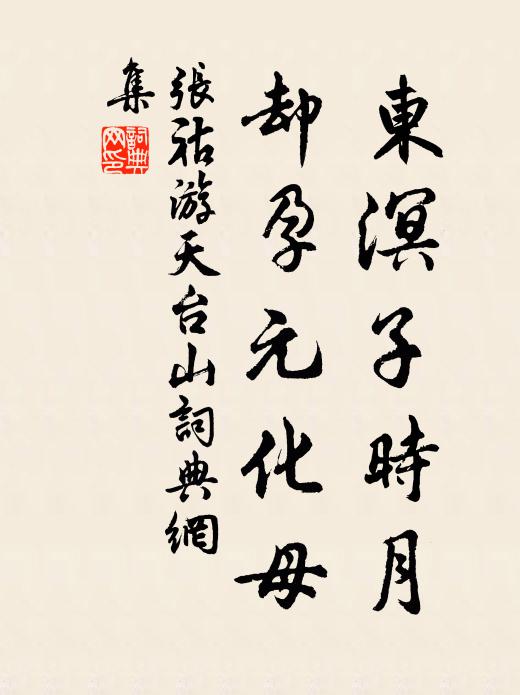 東溟子時月
却孕元化母
張祜游天台山詞典網
集
詞典網印